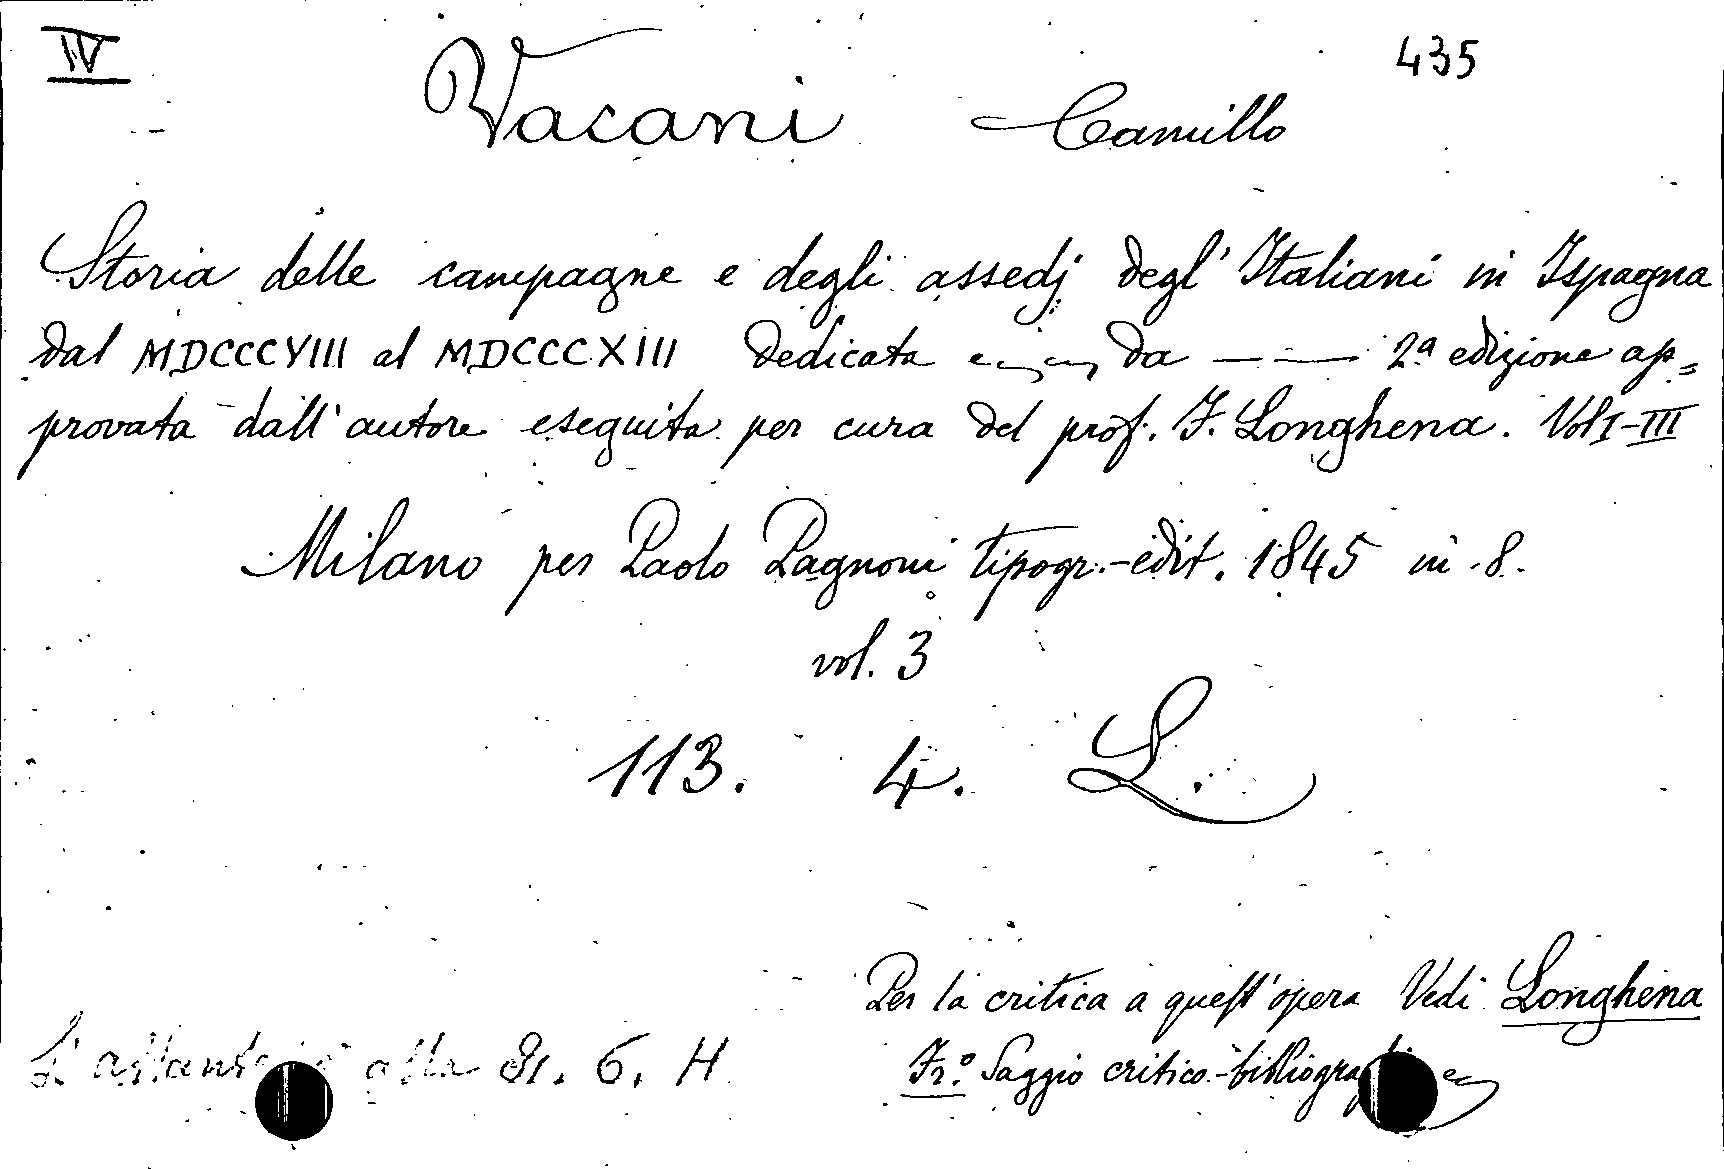 IV
435
Vacani Camillo
Storia delle campagne e degli assedj degl' Italiani in Ispagna
dal MDCCCVIII al MDCCCXIII dedicata ec. ec. da — — 2ª edizione ap=
provata dall' autore eseguita per cura del prof. F. Longhena. Vol I-III
Milano per Paolo Pagnoni tipogr.-edit. 1845 in 8.
vol. 3
113. 4. L.
Per la critica a quest' opera Vedi Longhena
Fr.º Saggio critico-bibliografi ec
L' atlante alla 81. 6. H